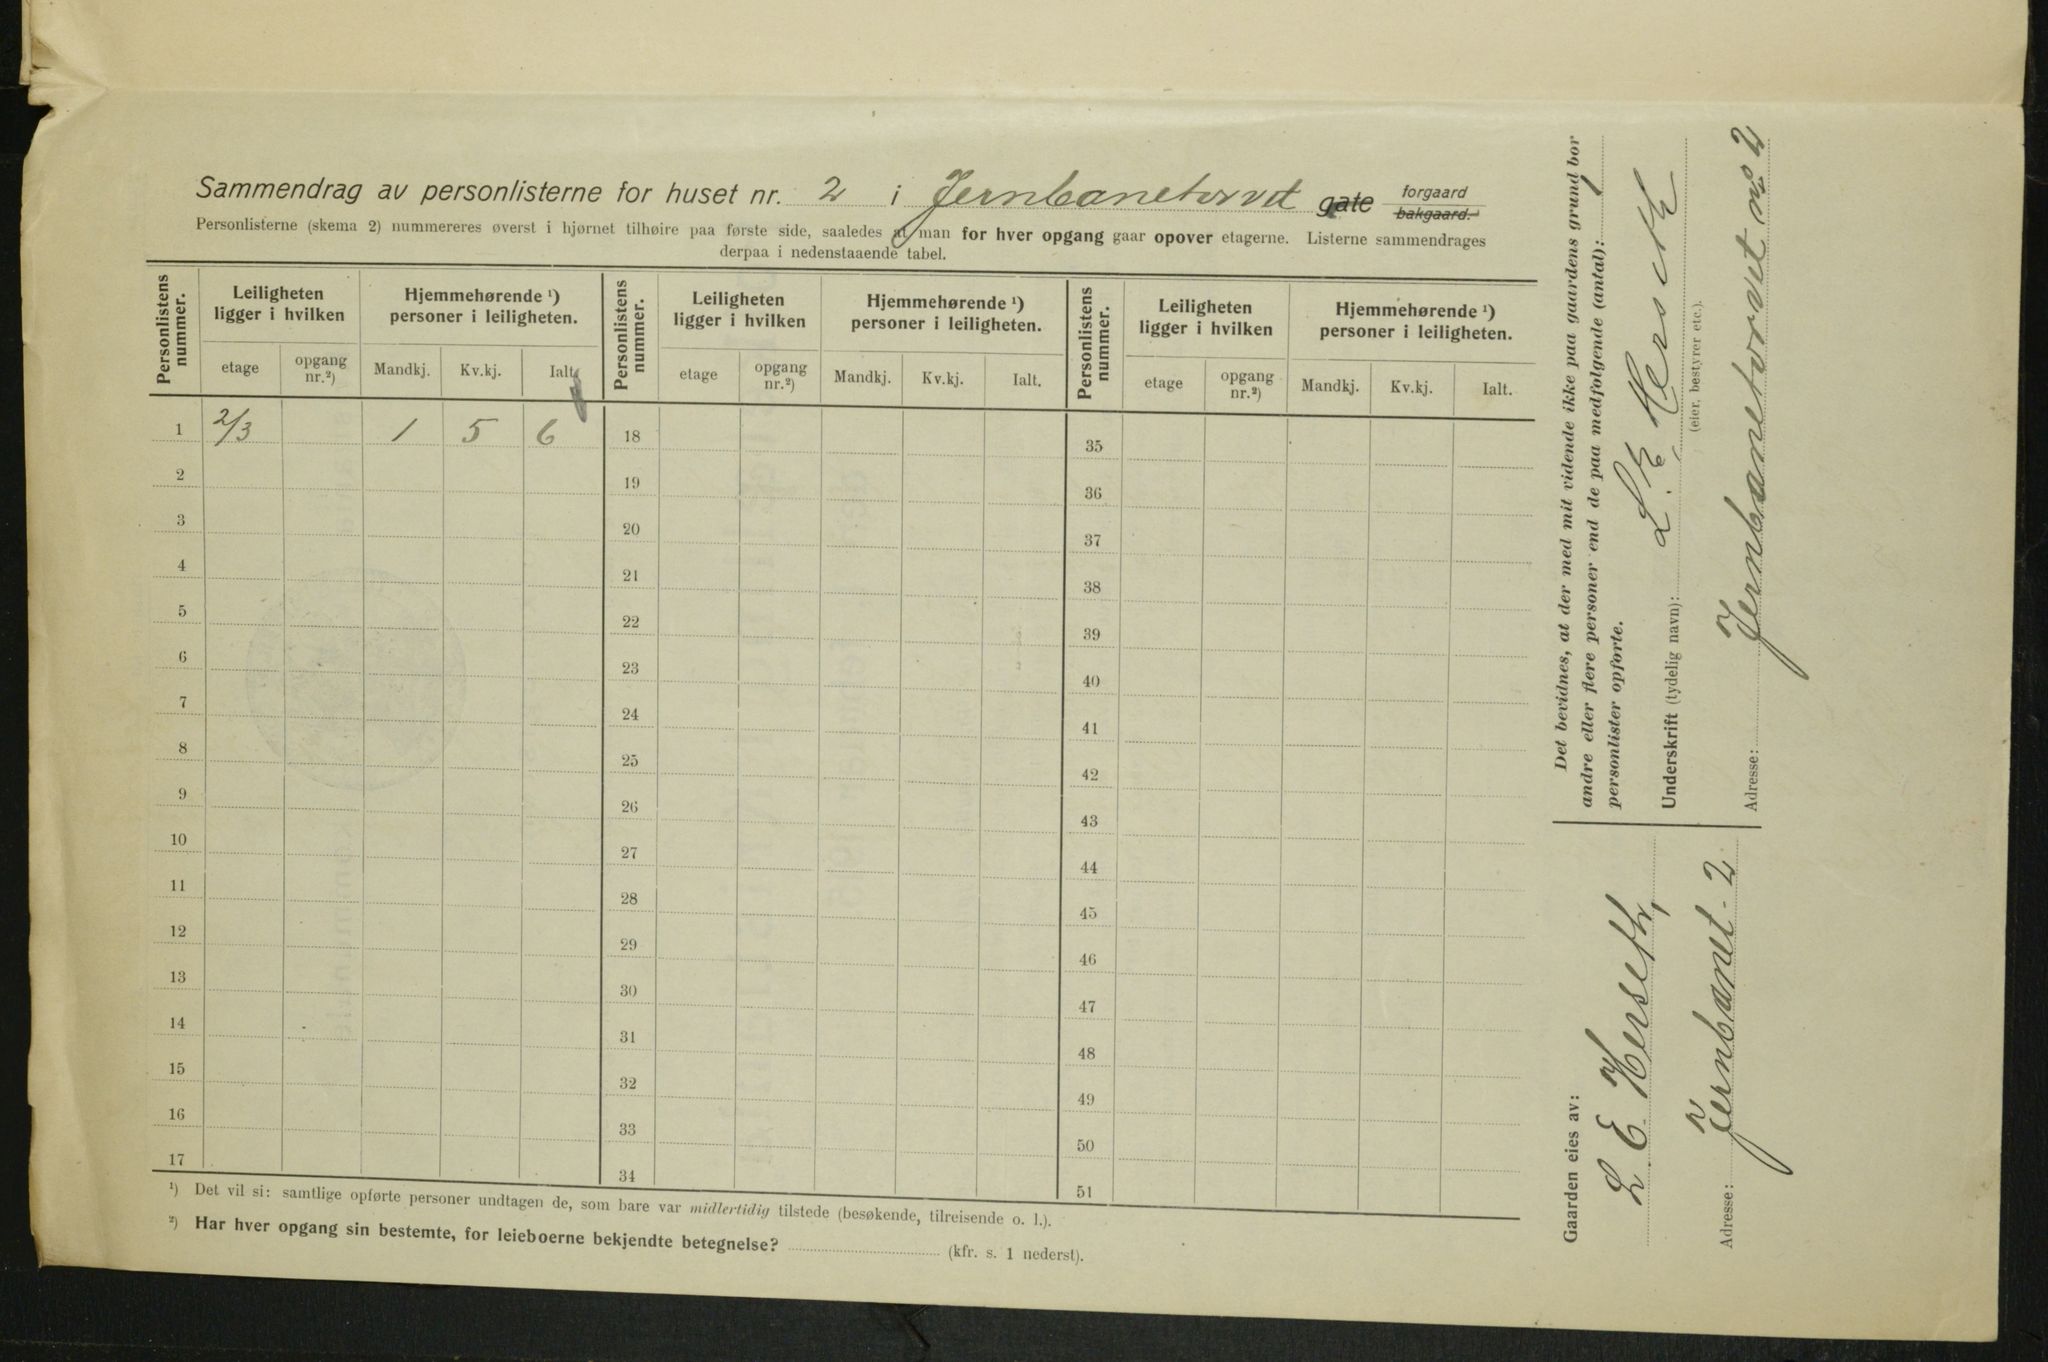 Sammendrag av personlisterne for huset nr. 2 i Jernbanetorvet gate forgaard bakgaard.
Personlisterne (skema 2) nummereres øverst i hjørnet tilhøire paa første side, saaledes at man for hver opgang gaar opover etagerne. Listerne sammendrages
derpaa i nedenstaaende tabel.
Personlistens nummer. Leiligheten ligger i hvilken Hjemmehørende ¹) personer i leiligheten. Personlistens nummer. Leiligheten ligger i hvilken Hjemmehørende ¹) personer i leiligheten. Personlistens nummer. Leiligheten ligger i hvilken Hjemmehørende ¹) personer i leiligheten.
etage opgang nr.²) Mandkj. Kv.kj. Ialt. etage opgang nr.²) Mandkj. Kv.kj. Ialt. etage opgang nr.²) Mandkj. Kv.kj. Ialt.
1 2/3 1 5 6 18 35
2 19 36
3 20 37
4 21 38
5 22 39
6 23 40
7 24 41
8 25 42
9 26 43
10 27 44
11 28 45
12 29 46
13 30 47
14 31 48
15 32 49
16 33 50
17 34 51
¹) Det vil si: samtlige opførte personer undtagen de, som bare var midlertidig tilstede (besøkende, tilreisende o. l.).
²) Har hver opgang sin bestemte, for leieboerne bekjendte betegnelse? (kfr. s. 1 nederst).
Det bevidnes, at der med mit vidende ikke paa gaardens grund bor
andre eller flere personer end de paa medfølgende (antal): 1
personlister opførte.
Underskrift (tydelig navn): L. E. Herseth
(eier, bestyrer etc.).
Adresse: Jernbanetorvet No 2
Gaarden eies av:
L. E. Herseth,
Adresse: Jernbanet. 2